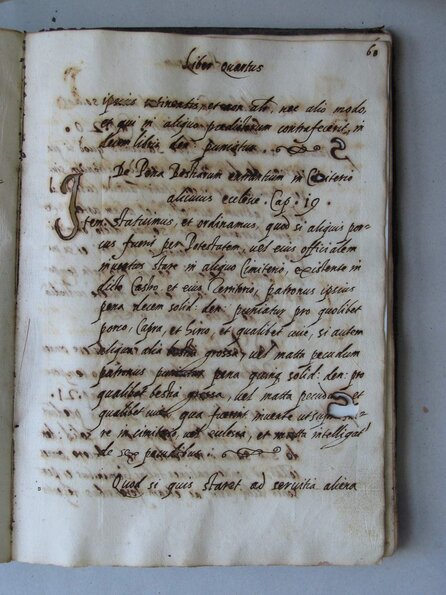 60
Liber Quartus
ipsius continentis, et non alr, nec alio modo,
et qui in aliquo prædictorum contrafecerit, in
decem libris den: puniatur.
De Pena Bestiarum euntium in Cimiterio
alicuius ecclesiæ. Cap. 19.
Item statuimus, et ordinamus, quod si aliquis por-
cus fuerit per Potestatem, vel eius officialem
inventus stare in aliquo Cimiterio, existente in
dicto Castro et eius Territorio, patronus ipsius
pena decem solid: den: puniatur pro quolibet
porco, Capra, et hirco, et qualibet vice, si autem
aliqua alia bestia grossa, vel matta pecudum
patronus pena quinq solid: den: pro
qualibet bestia grossa, vel matta pecudum, et
qualibet vice, qua fuerint invente ut supra
re in cimiterio, vel ecclesia, et matta intelligat
de sex pecudibus.
Quod si quis staret ad servitia aliena